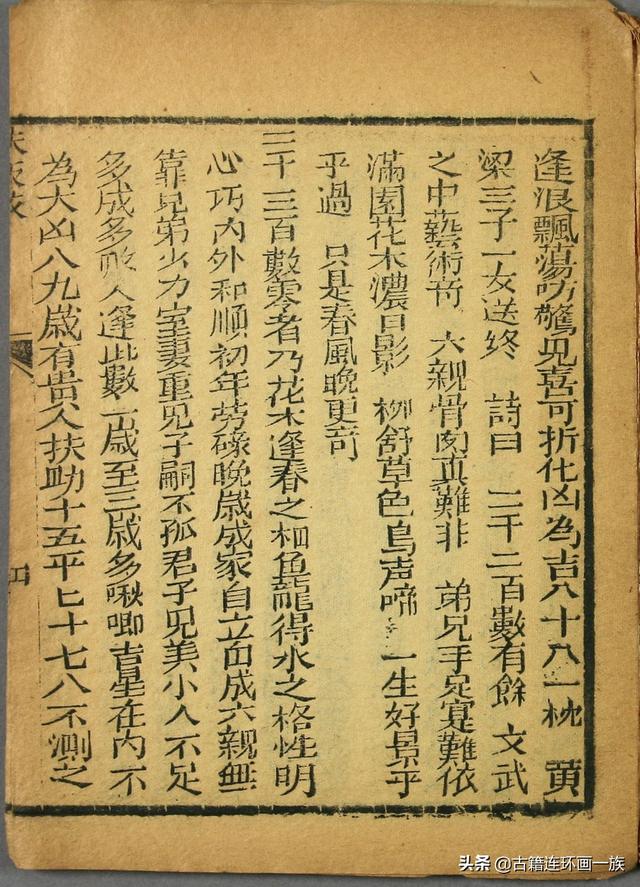 逢浪飄蕩叻驚見喜可折化凶為吉八十八一枕 黄
梁三子一女送終 詩曰 二千二百數有餘 文武
之中藝術竒 六親骨肉真難非 弟兄手足寔難依
滿園花木濃日影 柳舒草色鳥声啼 一生好景乎
乎過 只是春風晚更竒
三千三百數零者乃花木逢春之 魚龍得水之格性明
心巧内外和順初年劳碌晚歲成家自立 成六親無
靠兄弟少力室妻重見子嗣不孤君子見美小人不足
多成多敗人逢此數 歲至三歲多啾唧吉星在内不
為大凶八九歲有貴人扶助十五平匕十七八不測之
頭条 @古籍连环画一族